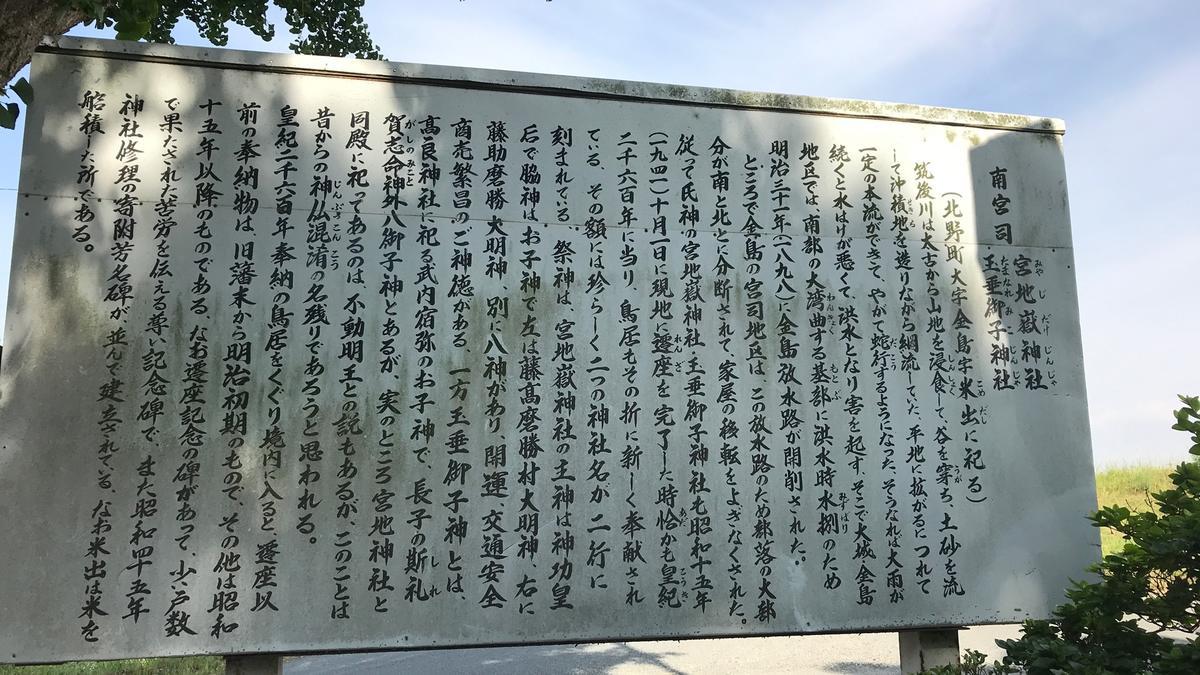 南宮司
宮地嶽神社
玉垂御子神社
(北野町大字金島字米出に祀る)
筑後川は太古から山地を浸食して、谷を穿ち、土砂を流
して沖積地を造りながら網流していた、平地に拡がるにつれて
一定の本流ができて、やがて蛇行するようになった。そうなれば大雨が
続くと水はけが悪くて、洪水となり害を起す、そこで大城、金島
地区では、南部の大湾曲する基部に洪水時水捌のため
明治三十一年(一八九八)に金島放水路が開削された。
ところで金島の宮司地区は、この放水路のため部落の大部
分が南と北とに分断されて、家屋の移転をよぎなくされた。
従って氏神の宮地嶽神社、玉垂御子神社も昭和十五年
(一九四一)十月一日に現地に遷座を完了した時恰かも皇紀
二千六百年に当り、鳥居もその折に新しく奉献され
ている、その額には珍らしく二つの神社名が二行に
刻まれている、祭神は、宮地嶽神社の主神は神功皇
后で脇神はお子神で左は藤高麿勝村大明神、右に
藤助磨勝大明神、別に八神があり、開運、交通安全
商売繁昌のご神徳がある、一方玉垂御子神とは、
高良神社に祀る武内宿弥のお子神で、長子の斯礼
賀志命神外八御子神とあるが、実のところ宮地神社と
同殿に祀ってあるのは、不動明王との説もあるが、このことは
昔からの神仏混淆の名残りであろうと思われる。
皇紀二千六百年奉納の鳥居をくぐり境内に入ると、遷座以
前の奉納物は、旧藩末から明治初期のもので、その他は昭和
十五年以降のものである、なお遷座記念の碑があって、少い戸数
で果たされた苦労を伝える尊い記念碑で、また昭和四十五年
神社修理の寄附芳名碑が、並んで建立されている、なお米出は米を
船積した所である。